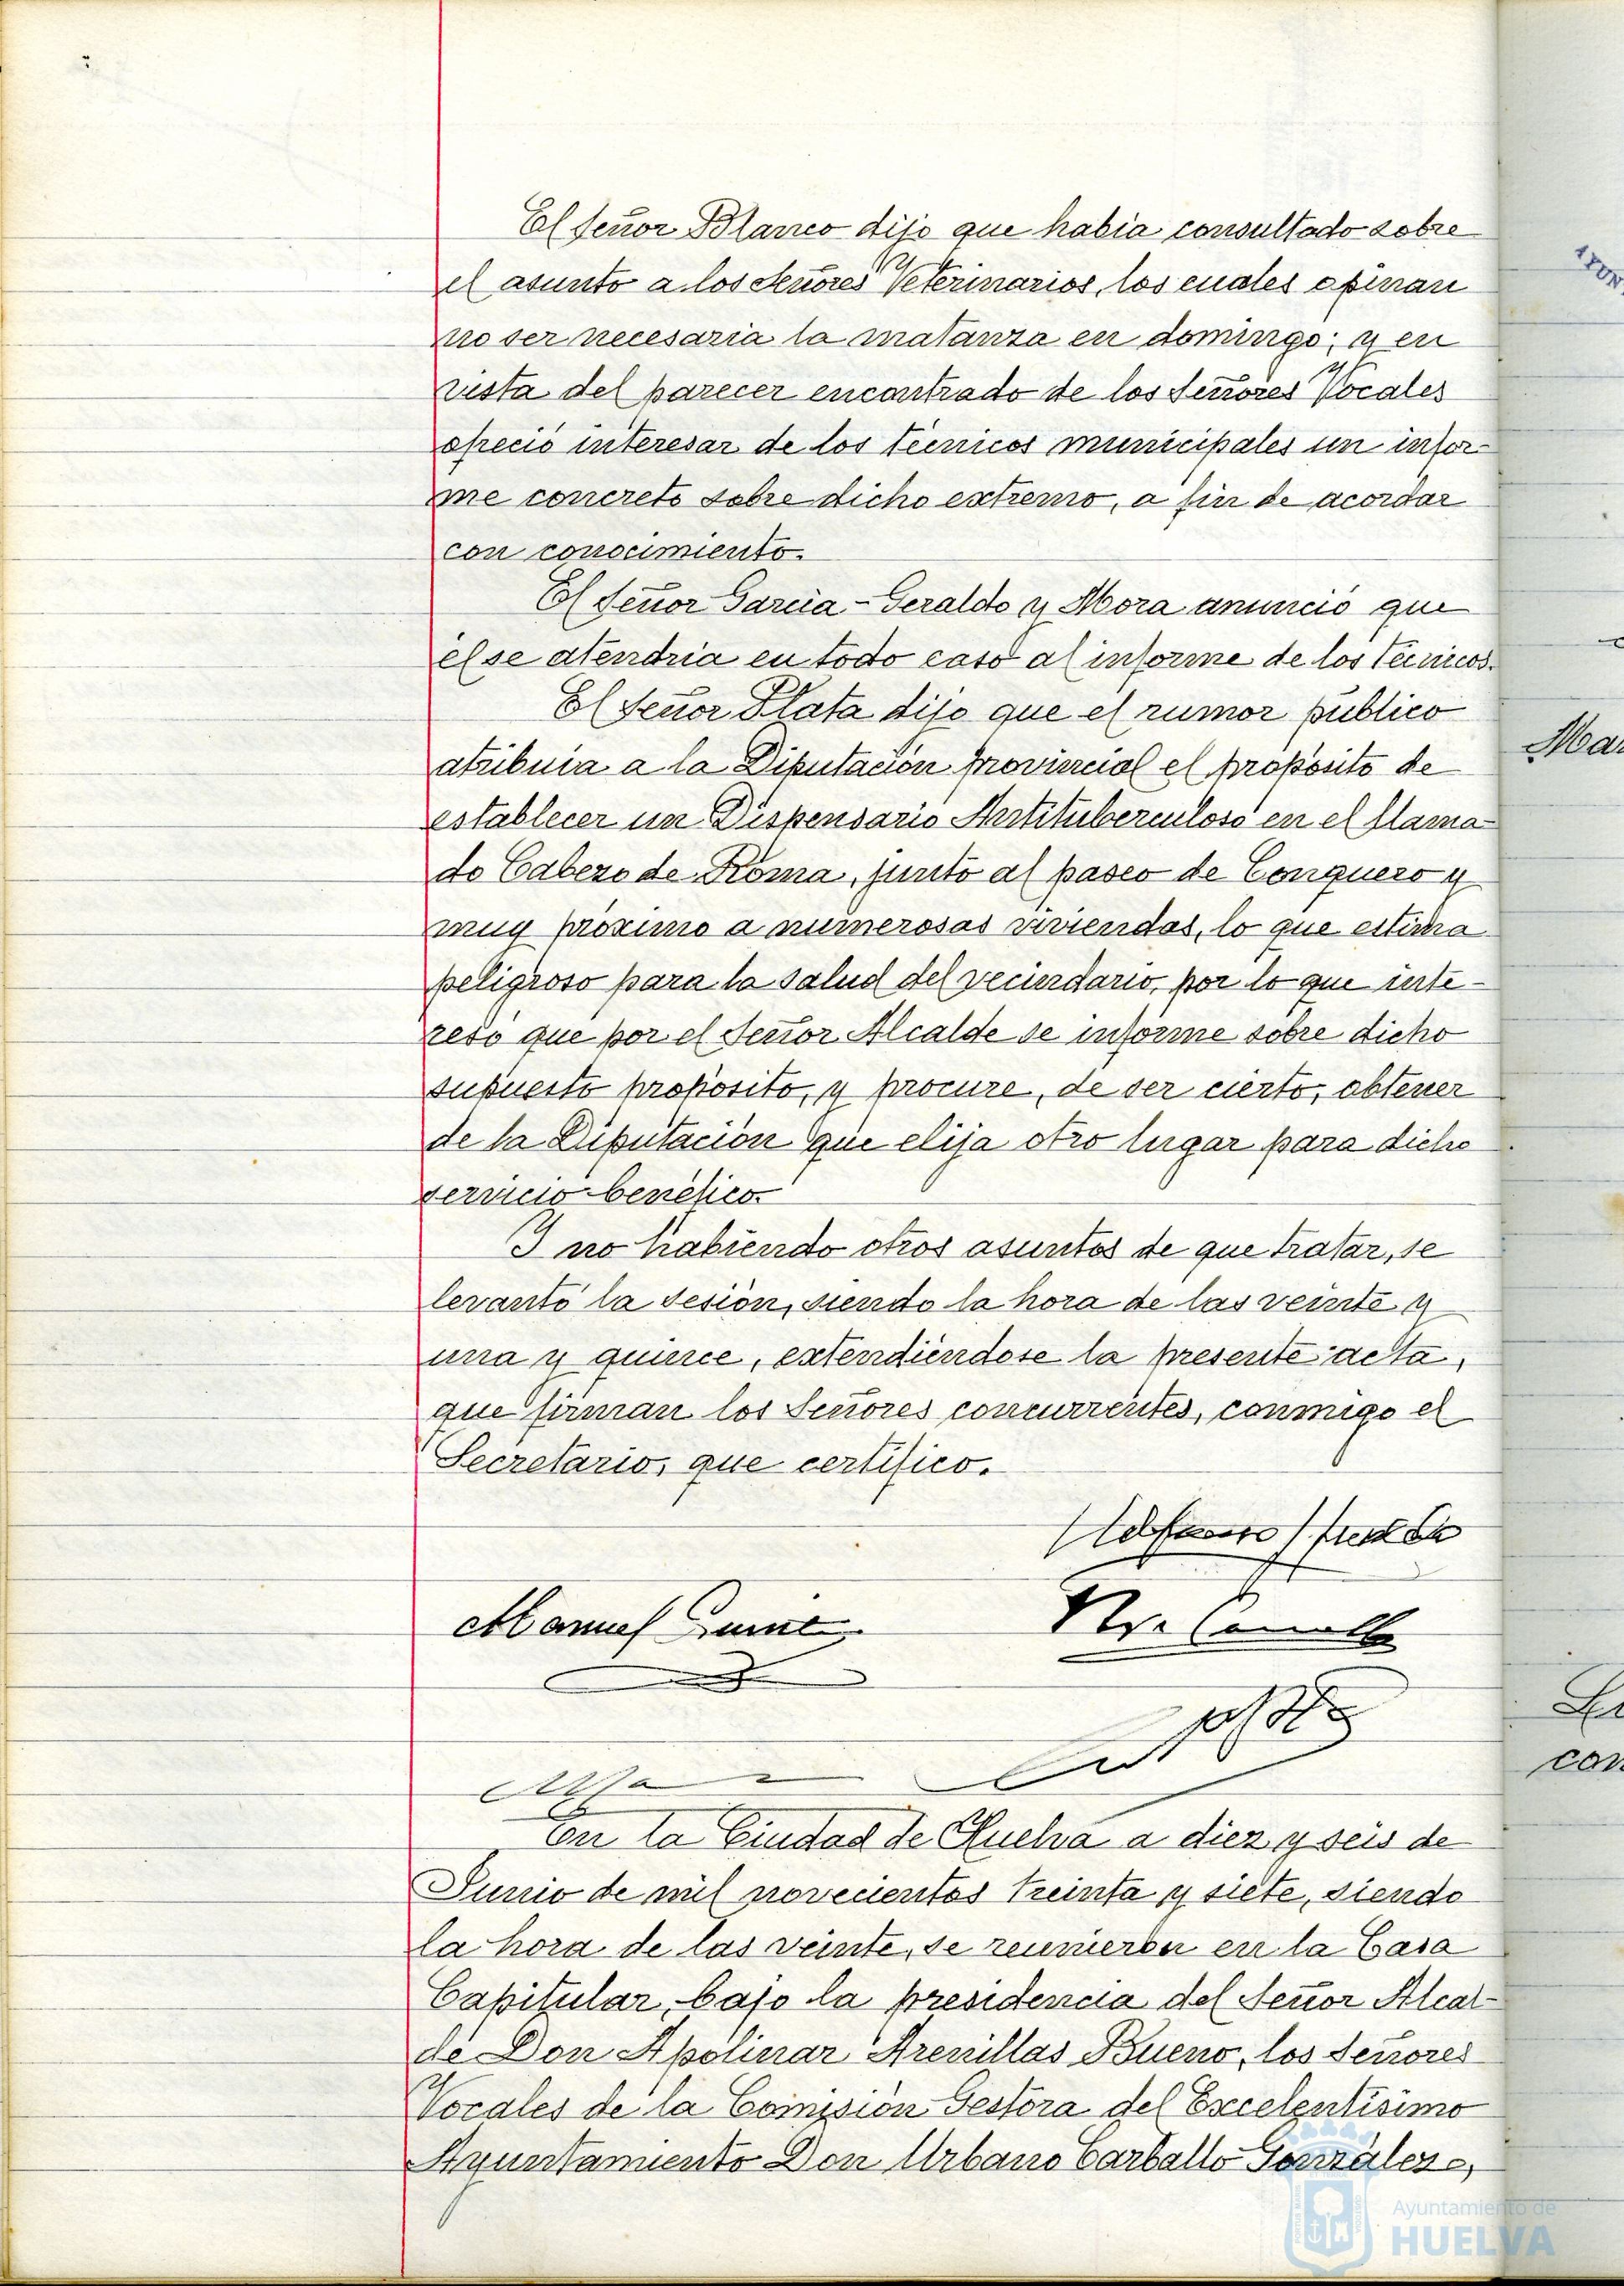 El Señor Blanco dijo que habia consultado sobre
el asunto a los Señores Veterinarios, los cuales opinan
no ser necesaria la matanza en domingo; y en
vista del parecer encontrado de los Señores Vocales
ofreció interesar de los técnicos municipales un infor-
me concreto sobre dicho extremo, a fin de acordar
con conocimiento.
El Señor Garcia-Geraldo y Mora anunció que
él se atendria en todo caso al informe de los Técnicos.
El Señor Plata dijo que el rumor público
atribuia a la Diputación provincial el propósito de
establecer un Dispensario Antituberculoso en el llama-
do Cabezo de Roma, junto al paseo de Conquero y
muy próximo a numerosas viviendas, lo que estima
peligroso para la salud del vecindario, por lo que inte-
resó que por el Señor Alcalde se informe sobre dicho
supuesto propósito, y procure, de ser cierto, obtener
de la Diputación que elija otro lugar para dicho
servicio benéfico.
Y no habiendo otros asuntos de que tratar, se
levantó la sesión, siendo la hora de las veinte y
una y quince, extendiéndose la presente acta,
que firman los Señores concurrentes, conmigo el
Secretario, que certifico.
Manuel
En la Ciudad de Huelva a diez y seis de
Junio de mil novecientos treinta y siete, siendo
la hora de las veinte, se reunieron en la Casa
Capitular, bajo la presidencia del Señor Alcal-
de Don Apolinar Arenillas Bueno, los Señores
Vocales de la Comisión Gestora del Excelentísimo
Ayuntamiento Don Urbano Carballo González,
Ayuntamiento de
HUELVA